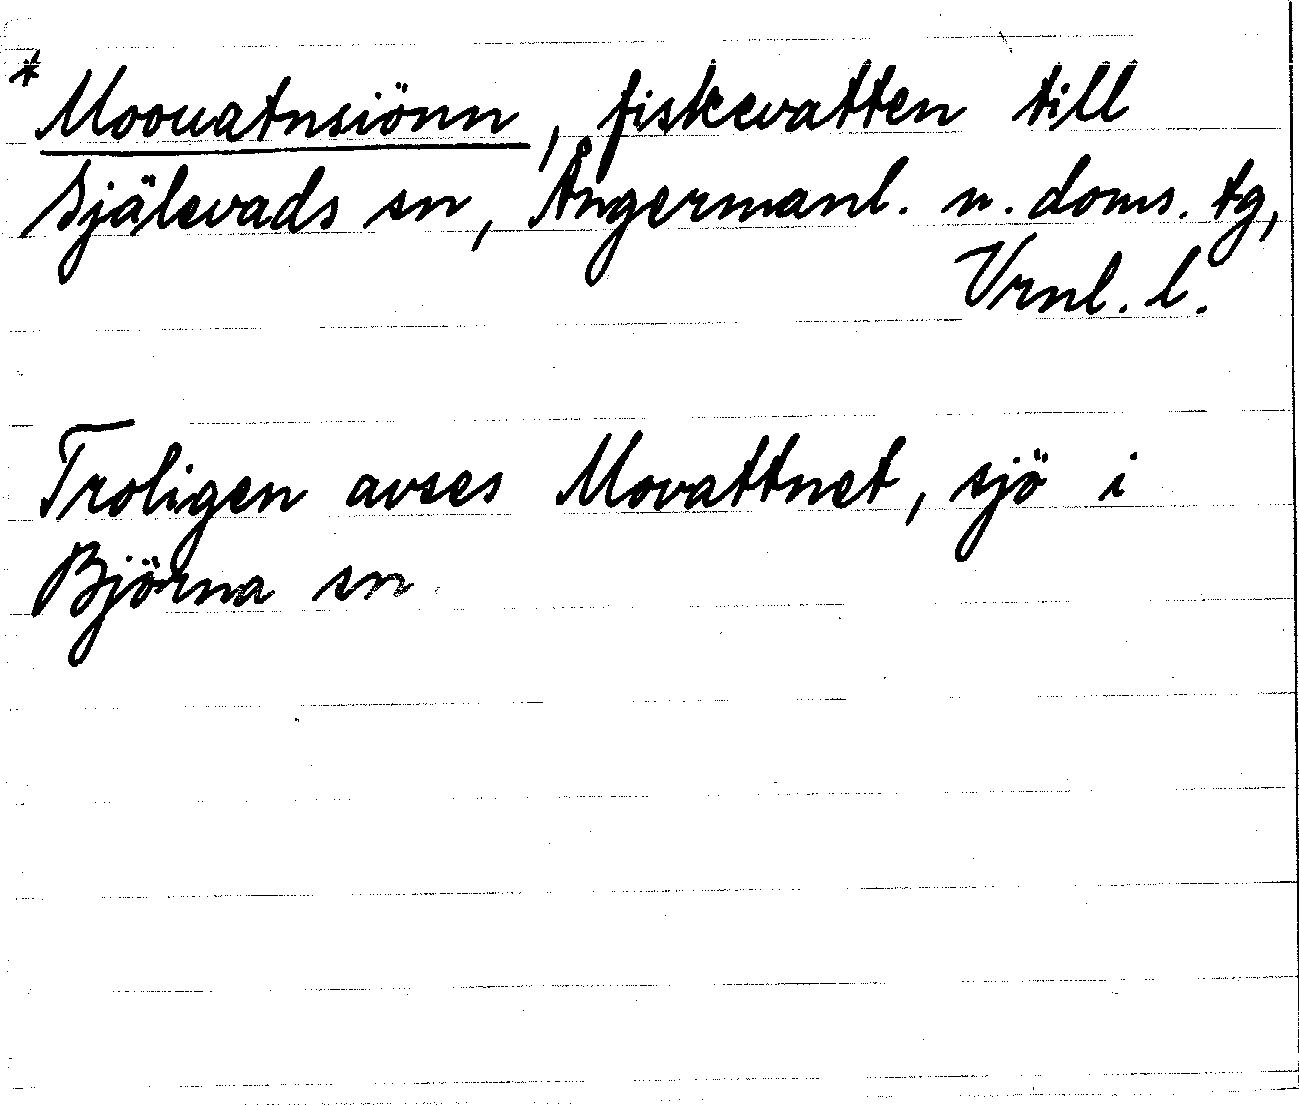 * Moouatnsiönn, fiskevatten till
Själevads sn, Ångermanl. n. doms. tg,
Vrnl. l.
Troligen avses Movattnet, sjö i
Björna sn